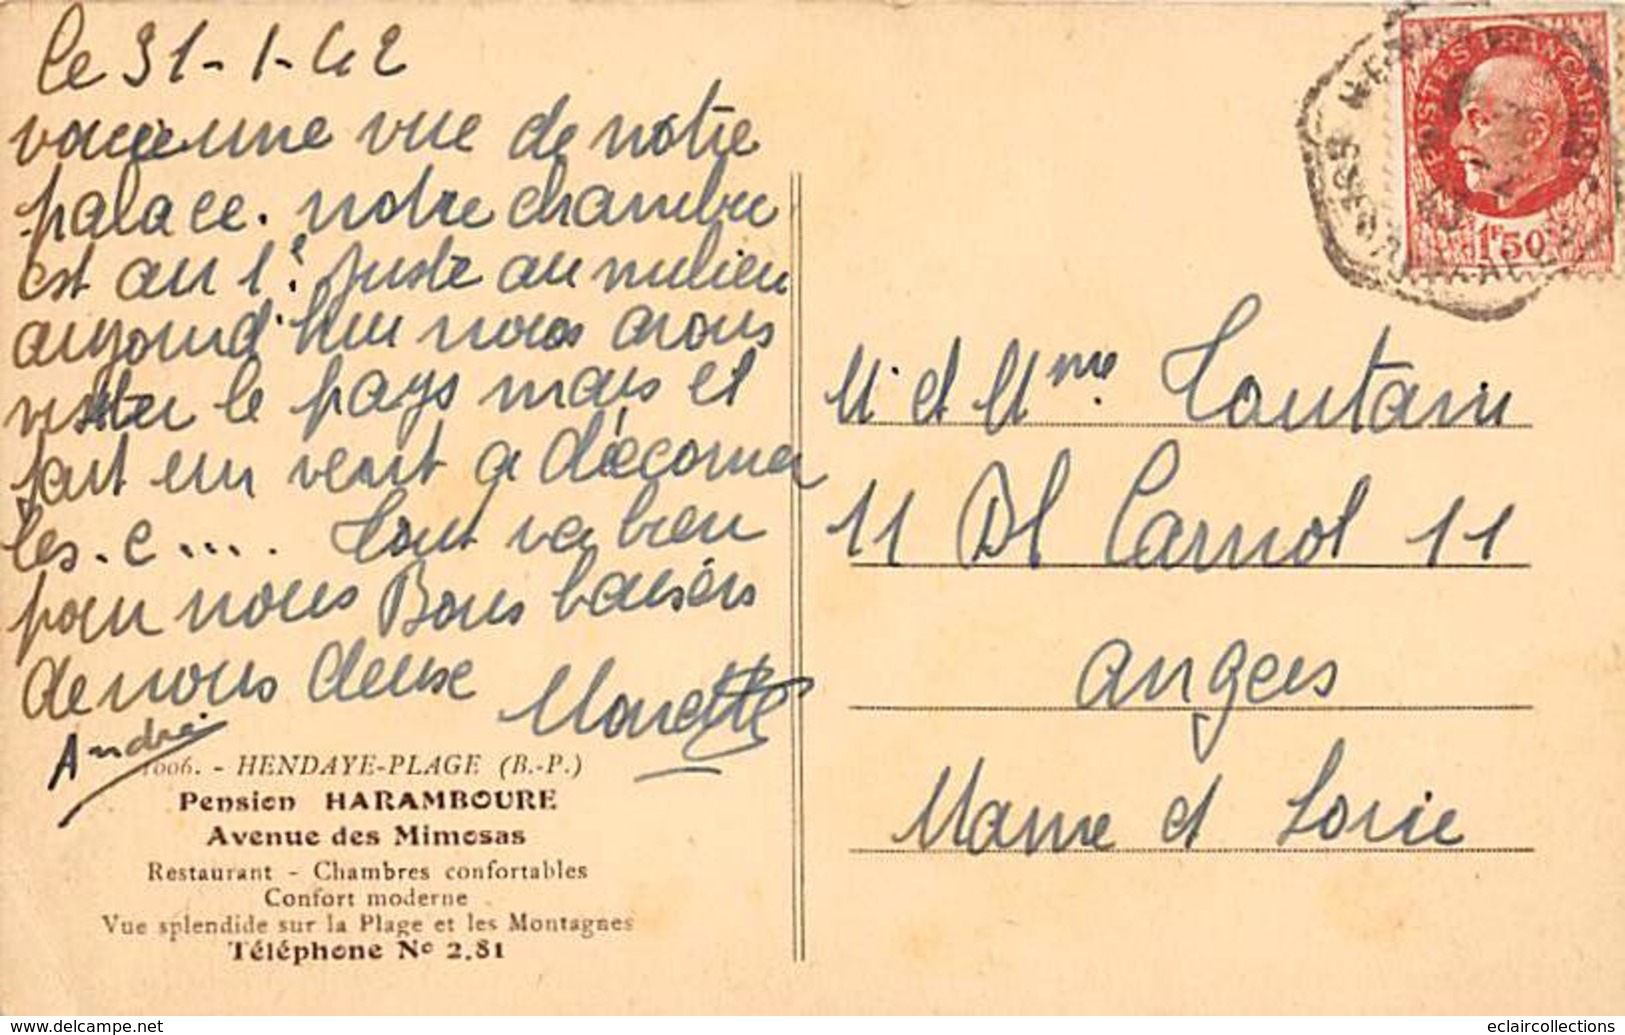 le 31-1-42
voici une vue de notre
palace. notre chambre
est au 1e. juste au milieu
aujourd'hui nous avons
visiter le pays mais il
fait un vent a décorner
les. c....  tout va bien
pour nous Bons baisers
de nous deux
André
1006. - HENDAYE-PLAGE (B.-P.)
Pension HARAMBOURE
Avenue des Mimosas
Restaurant - Chambres confortables
Confort moderne
Vue splendide sur la Plage et les Montagnes
Téléphone Nº 2.81
POSTES FRANÇAISES
1F50
M. et Mme.
11 Bd Carnot 11
Angers
Maine et Loire
www.delcampe.net
eclaircollections